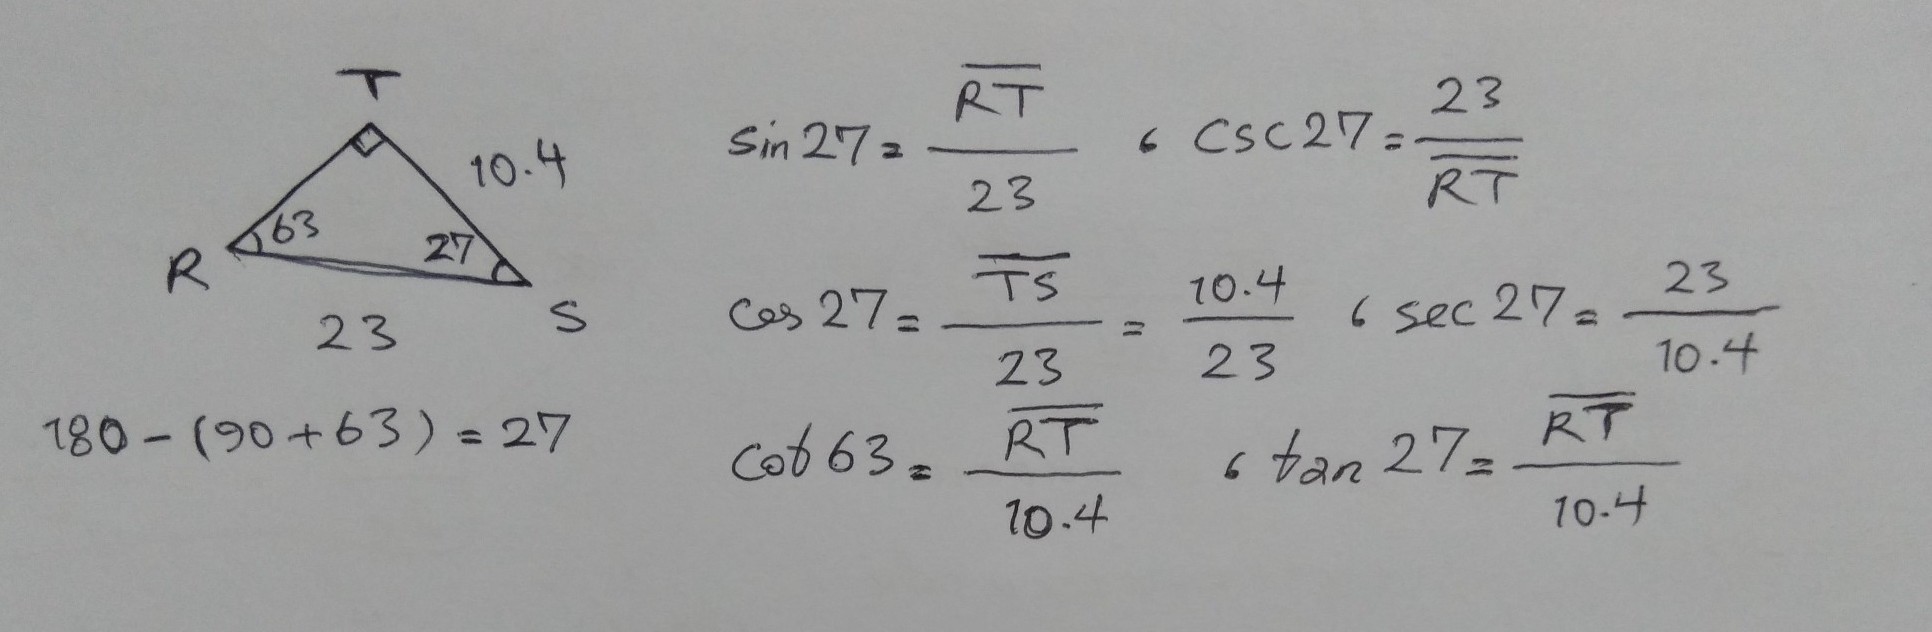 T
10.4
63
27
R
S
23
180 - (90 + 63) = 27
sin 27 = \frac{\overline{RT}}{23} , csc 27 = \frac{23}{\overline{RT}}
cos 27 = \frac{\overline{TS}}{23} = \frac{10.4}{23} , sec 27 = \frac{23}{10.4}
cot 63 = \frac{\overline{RT}}{10.4} , tan 27 = \frac{\overline{RT}}{10.4}